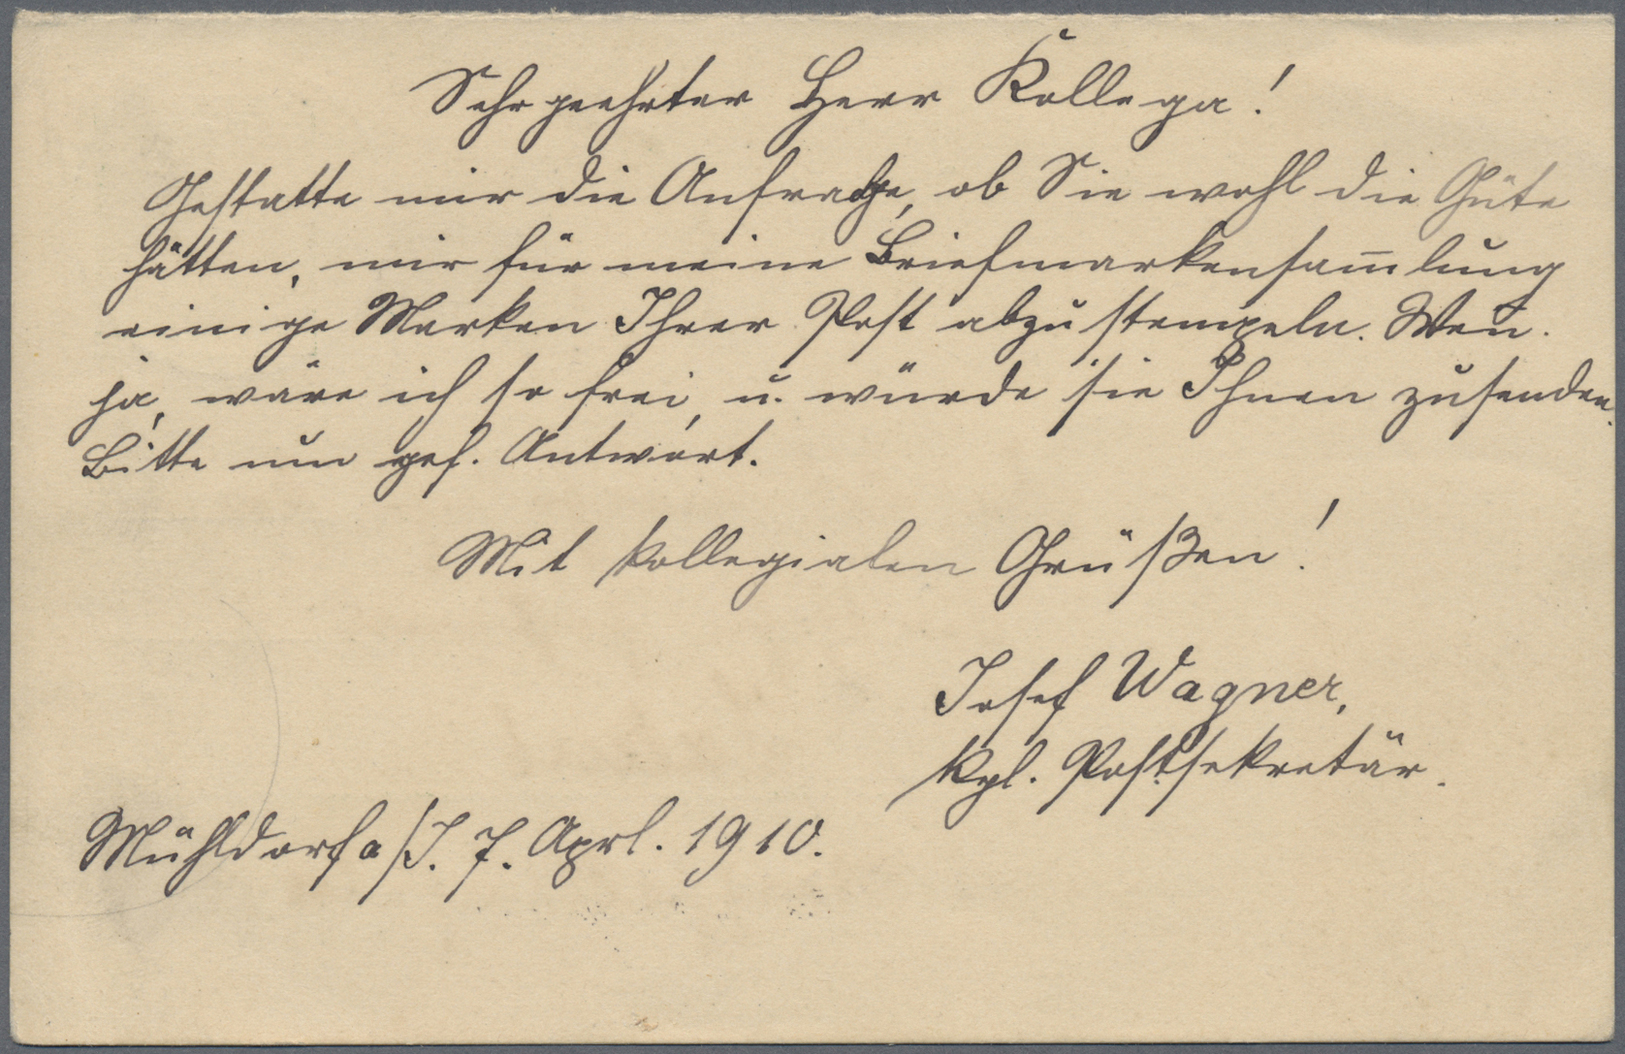 Sehr geehrter Herr Kollega!
Gestatte mir die Anfrage, ob Sie wohl die Güte
hätten, mir für meine Briefmarkensam̄lung
einige Marken Ihrer Post abzustempeln. Wen̄
ja, wäre ich so frei, u. würde sie Ihnen zusenden.
Bitte um gef. Antwort.
Mit kollegialen Grüßen!
Josef Wagner,
kgl. Postsekretär.
Mühldorf a/J. 7. Aprl. 1910.